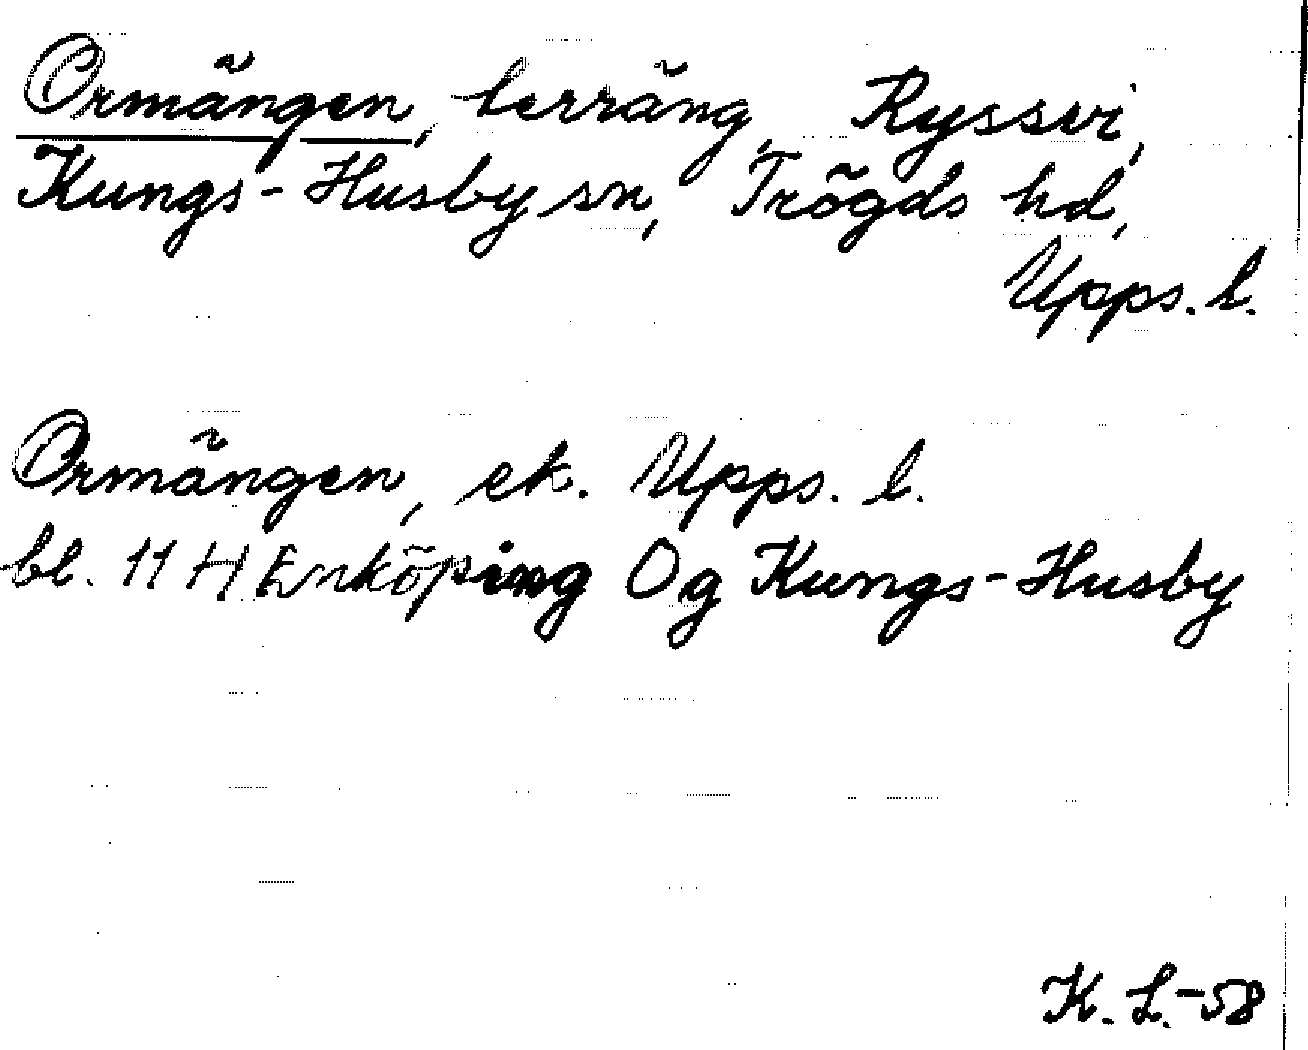 Ormängen, terräng, Ryssvi,
Kungs-Husby sn, Trögds hd,
Upps. l.
Ormängen, ek. Upps. l.
bl. 11 H Enköping Og Kungs-Husby
K. L.-58